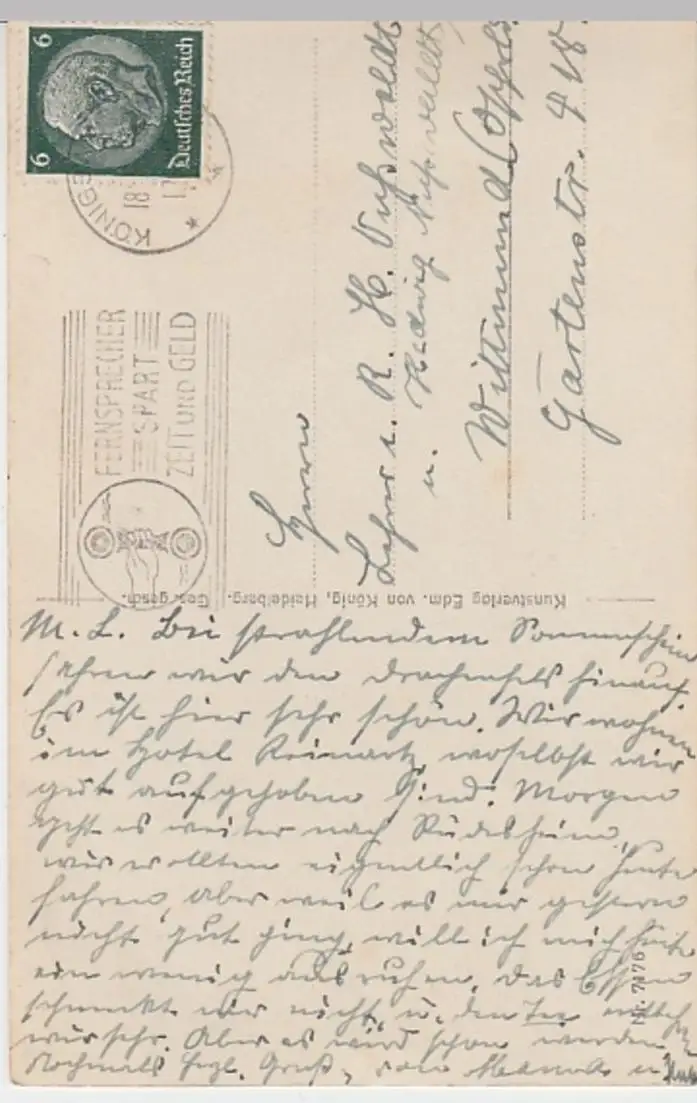 6 Deutsches Reich 6
KÖNIG
18
FERNSPRECHER
SPART
ZEIT UND GELD
Herrn
Lehrer u. R. H.
u. Hedwig
Wittmund
Gartenstr. 418
Kunstverlag Edm. von König, Heidelberg. Ges. gesch.
Nr. 7176
M. L. Bei strahlendem Sonnenschein
fahren wir den Drachenfels hinauf.
Es ist hier sehr schön. Wir wohnen
im Hotel Reinartz, woselbst wir
gut aufgehoben sind. Morgen
geht es weiter nach Rüdesheim,
wir wollten eigentlich schon heute
fahren, aber weil es mir gestern
nicht gut ging, will ich mich heute
ein wenig ausruhen, das Essen
schmeckt mir nicht, u. den Tee
sehr. Aber es wird schon werden.
Nochmals herzl. Gruß, von